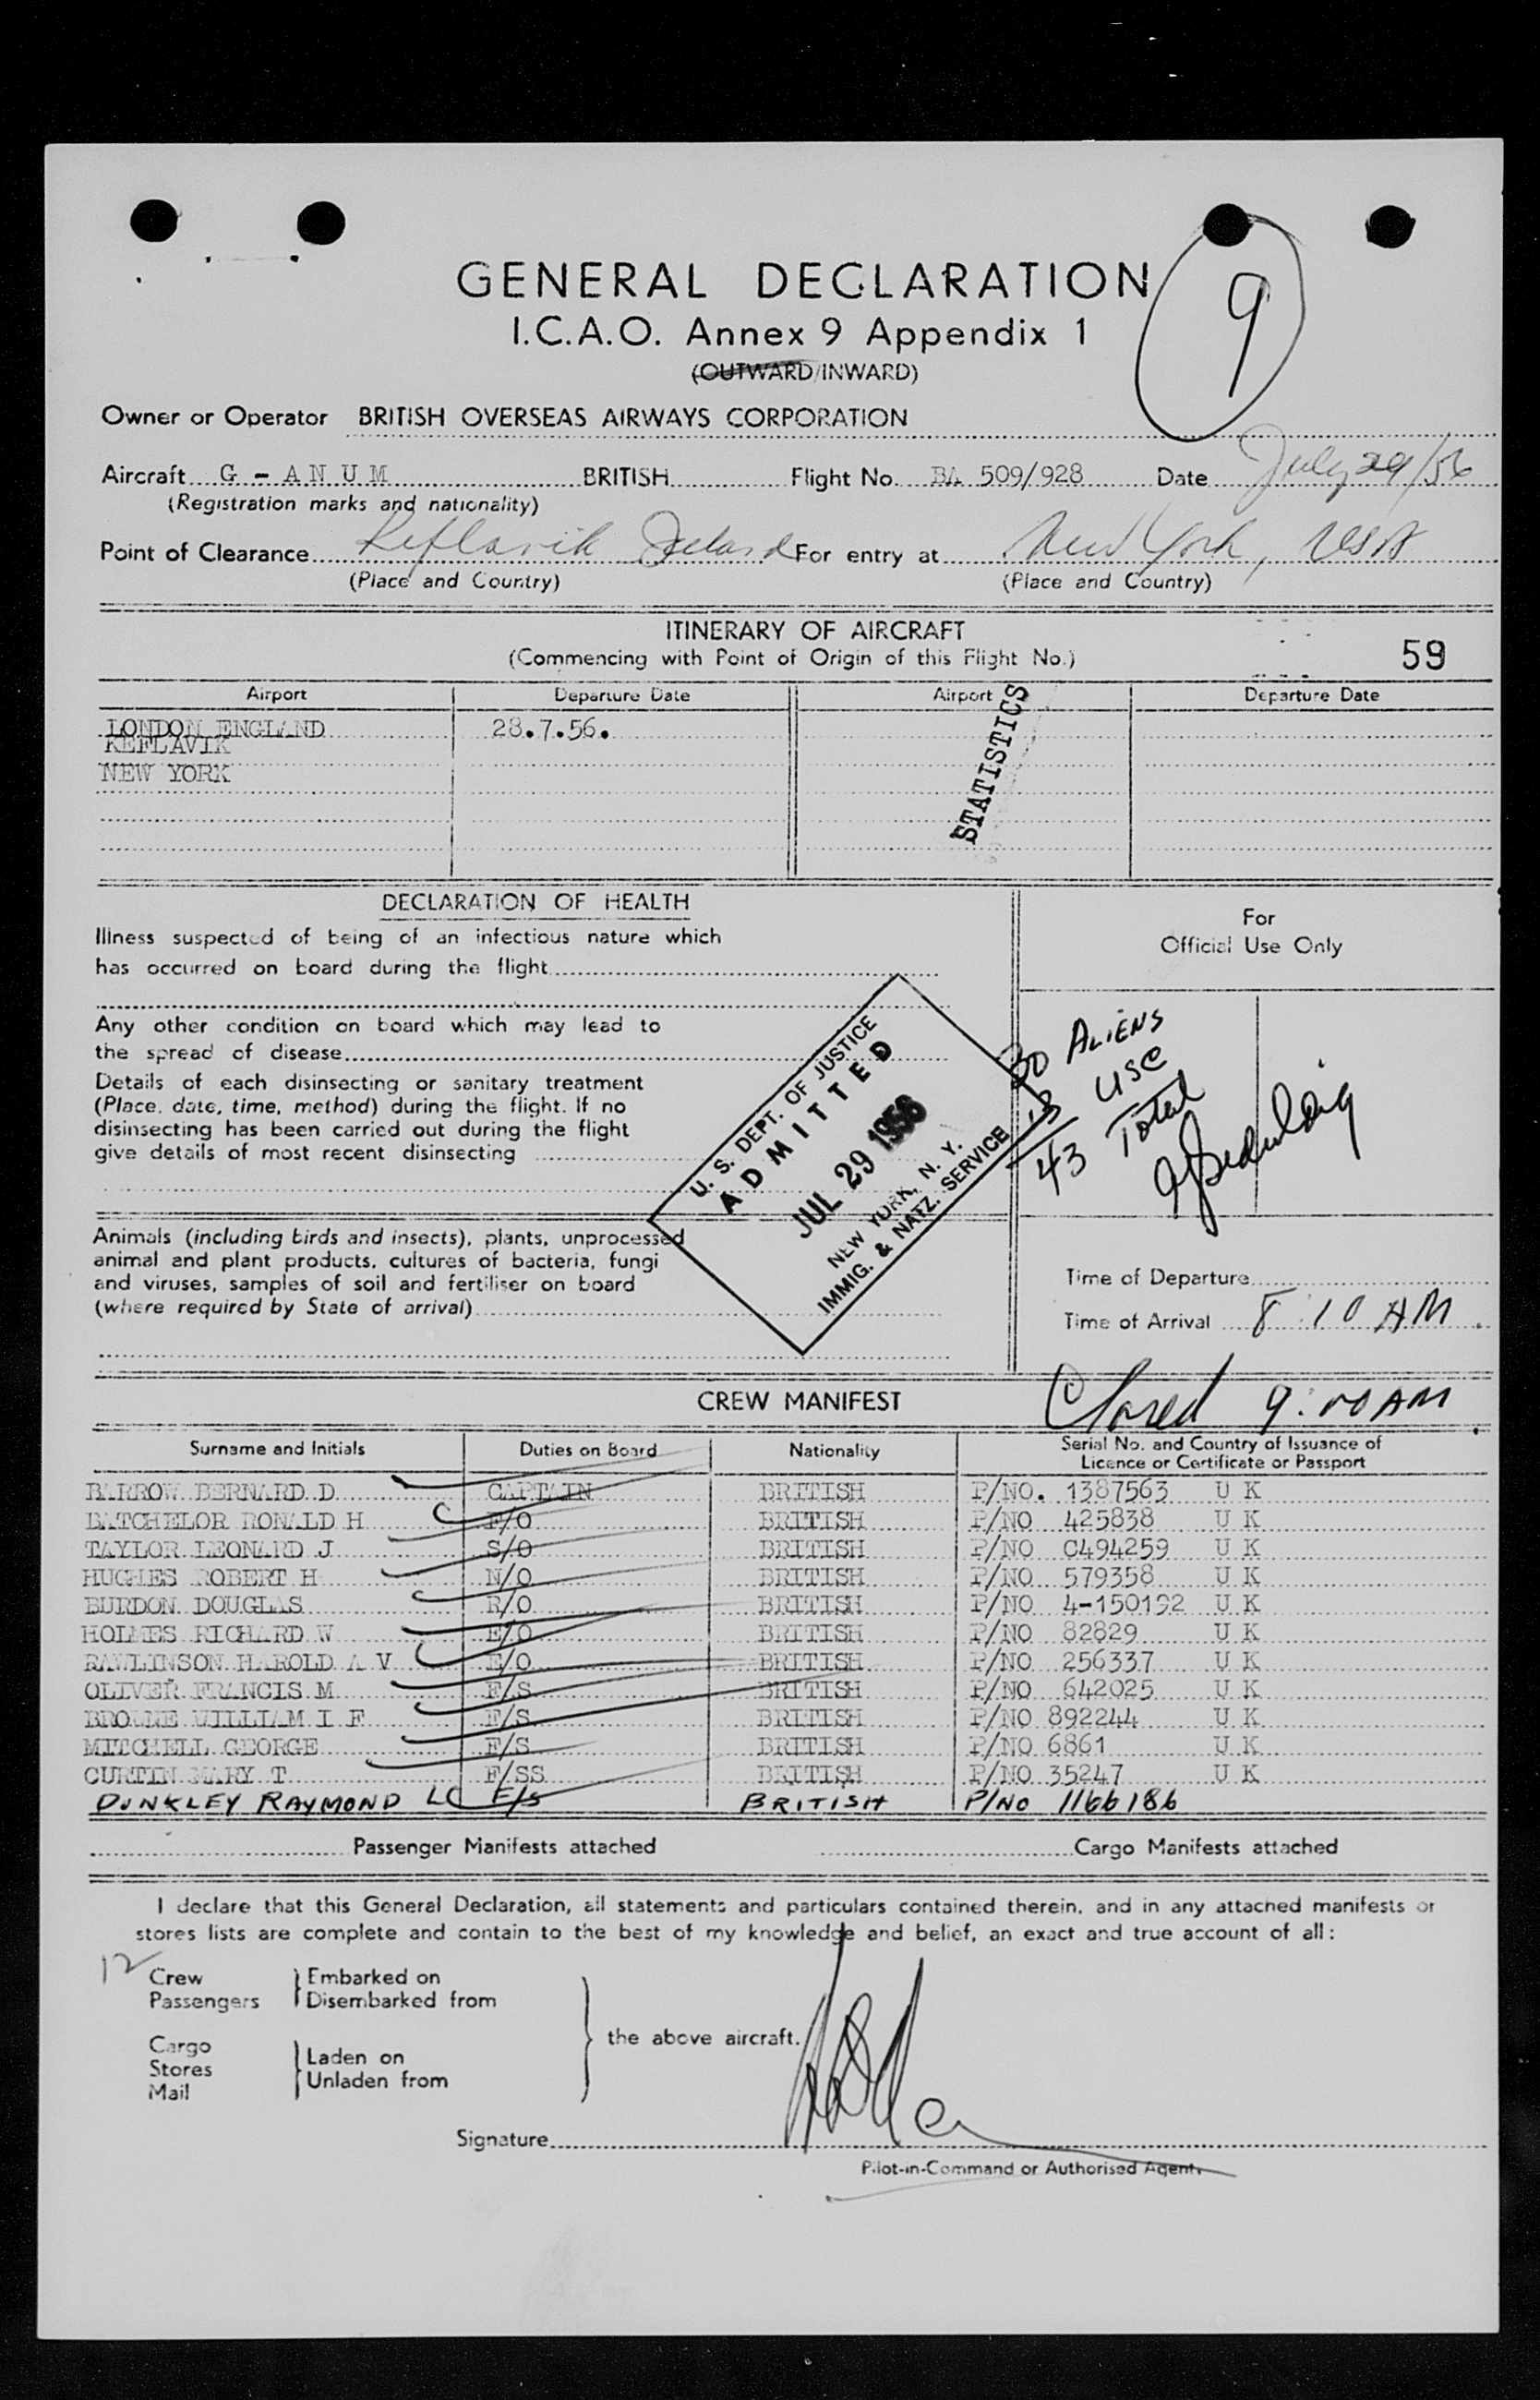 9
GENERAL DECLARATION
I.C.A.O. Annex 9 Appendix 1
(OUTWARD/INWARD)
Owner or Operator BRITISH OVERSEAS AIRWAYS CORPORATION
Aircraft G - A N U M BRITISH Flight No. BA 509/928 Date July 29/56
(Registration marks and nationality)
Point of Clearance Keflavik Iceland For entry at New York, USA
(Place and Country) (Place and Country)
ITINERARY OF AIRCRAFT
(Commencing with Point of Origin of this Flight No.)
59
Airport Departure Date Airport Departure Date
LONDON ENGLAND 28.7.56.
KEFLAVIK
NEW YORK
STATISTICS
DECLARATION OF HEALTH
Illness suspected of being of an infectious nature which
has occurred on board during the flight
Any other condition on board which may lead to
the spread of disease
Details of each disinsecting or sanitary treatment
(Place, date, time, method) during the flight. If no
disinsecting has been carried out during the flight
give details of most recent disinsecting
Animals (including birds and insects), plants, unprocessed
animal and plant products, cultures of bacteria, fungi
and viruses, samples of soil and fertiliser on board
(where required by State of arrival)
U. S. DEPT. OF JUSTICE
ADMITTED
JUL 29 1956
NEW YORK, N. Y.
IMMIG. & NATZ. SERVICE
For
Official Use Only
30 ALIENS
13 USC
43 Total
Time of Departure
Time of Arrival 8:10 AM
Closed 9:00 AM
CREW MANIFEST
Surname and Initials Duties on Board Nationality Serial No. and Country of Issuance of
Licence or Certificate or Passport
BARROW BERNARD D CAPTAIN BRITISH P/NO. 1387563 U K
BATCHELOR RONALD H F/O BRITISH P/NO 425838 U K
TAYLOR LEONARD J S/O BRITISH P/NO C494259 U K
HUGHES ROBERT H N/O BRITISH P/NO 579358 U K
BURDON DOUGLAS R/O BRITISH P/NO 4-150192 U K
HOLMES RICHARD W E/O BRITISH P/NO 82829 U K
RAWLINSON HAROLD A V E/O BRITISH P/NO 256337 U K
OLIVER FRANCIS M F/S BRITISH P/NO 642025 U K
BROWNE WILLIAM I F F/S BRITISH P/NO 892244 U K
MITCHELL GEORGE F/S BRITISH P/NO 6861 U K
CURTIN MARY T F/SS BRITISH P/NO 35247 U K
DUNKLEY RAYMOND LC F/S BRITISH P/NO 1166186
Passenger Manifests attached Cargo Manifests attached
I declare that this General Declaration, all statements and particulars contained therein, and in any attached manifests or
stores lists are complete and contain to the best of my knowledge and belief, an exact and true account of all:
12 Crew Embarked on
Passengers Disembarked from
the above aircraft.
Cargo
Stores Laden on
Mail Unladen from
Signature
Pilot-in-Command or Authorised Agent.